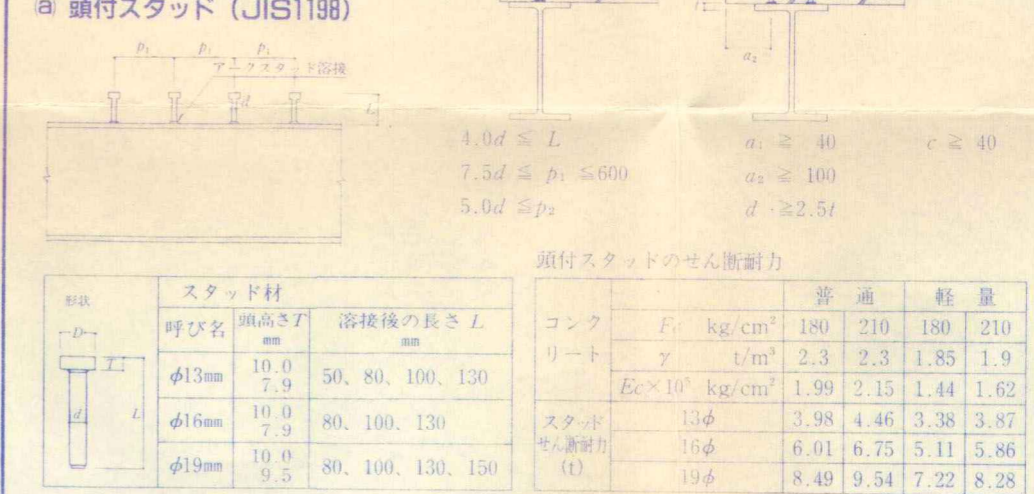 ⓐ 頭付スタッド (JIS1198)
p₁ p₁ p₁
アークスタッド溶接
d
L
a₂
4.0d ≦ L
7.5d ≦ p₁ ≦600
5.0d ≦p₂
a₁ ≧ 40
a₂ ≧ 100
d ≧2.5t
c ≧ 40
形状
D
T
d
L
スタッド材
呼び名 頭高さT mm 溶接後の長さ L mm
φ13mm 10.0 7.9 50、80、100、130
φ16mm 10.0 7.9 80、100、130
φ19mm 10.0 9.5 80、100、130、150
頭付スタッドのせん断耐力
普 通 軽 量
コンクリート Fc kg/cm² 180 210 180 210
γ t/m³ 2.3 2.3 1.85 1.9
Ec×10⁵ kg/cm² 1.99 2.15 1.44 1.62
スタッドせん断耐力 (t) 13φ 3.98 4.46 3.38 3.87
16φ 6.01 6.75 5.11 5.86
19φ 8.49 9.54 7.22 8.28